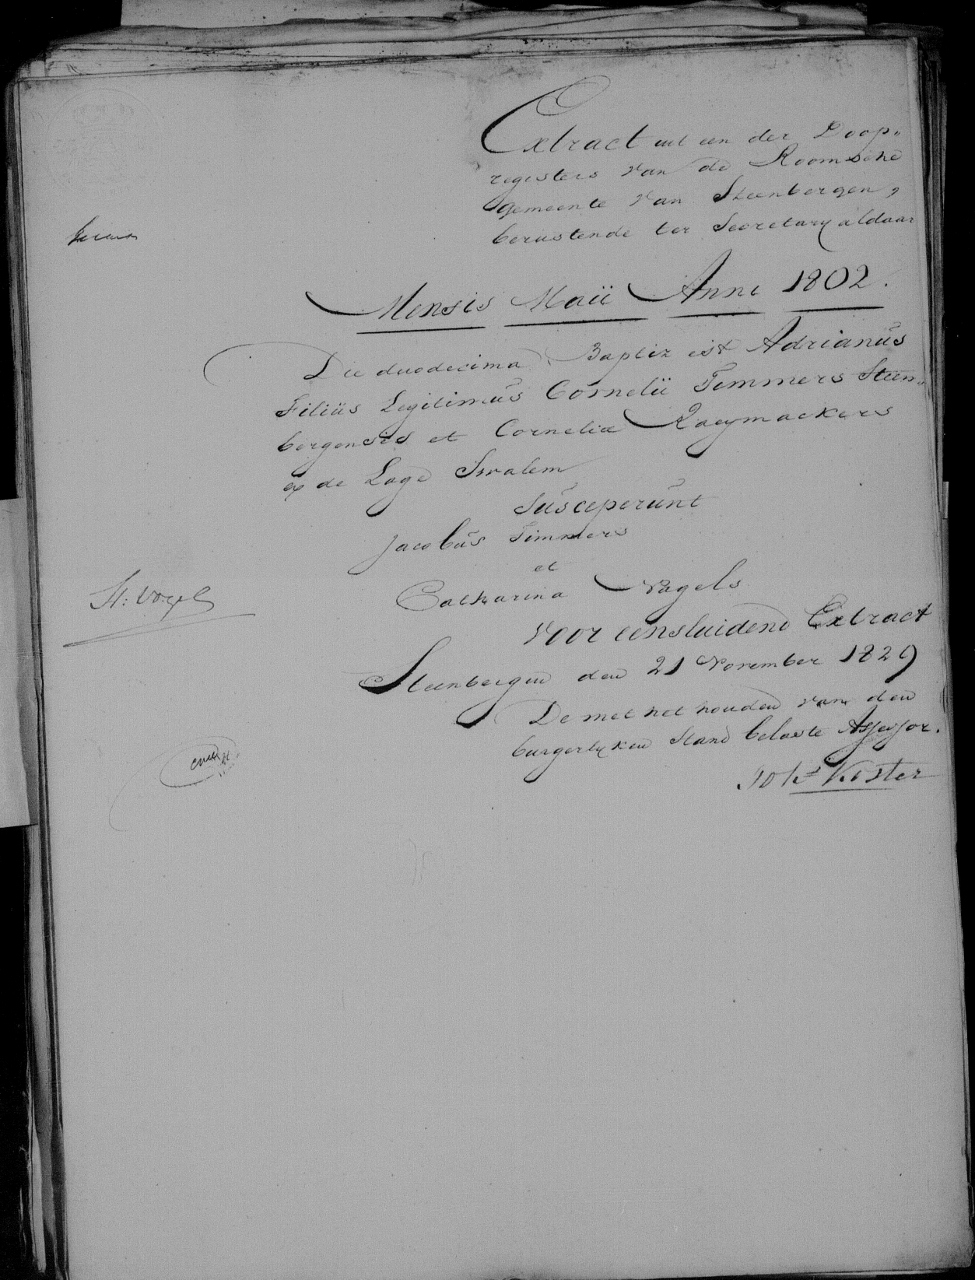 Extract uit een der Doop-
registers van de Roomsche
gemeente van Steenbergen,
berustende ter Secretary aldaar
Mensis Maii Anni 1802.
Die duodecima Baptiz est Adrianus
Filius Legitimus Cornelii Timmers Steen-
bergensis et Cornelia Raeymackers
ex de Lage Swalem
Susceperunt
Jacobus Timmers
et
Catharina Nagels
Voor eensluidend Extract
Steenbergen den 21 November 1829
De met het houden van den
burgerlyken Stand belaste Assessor.
Koster